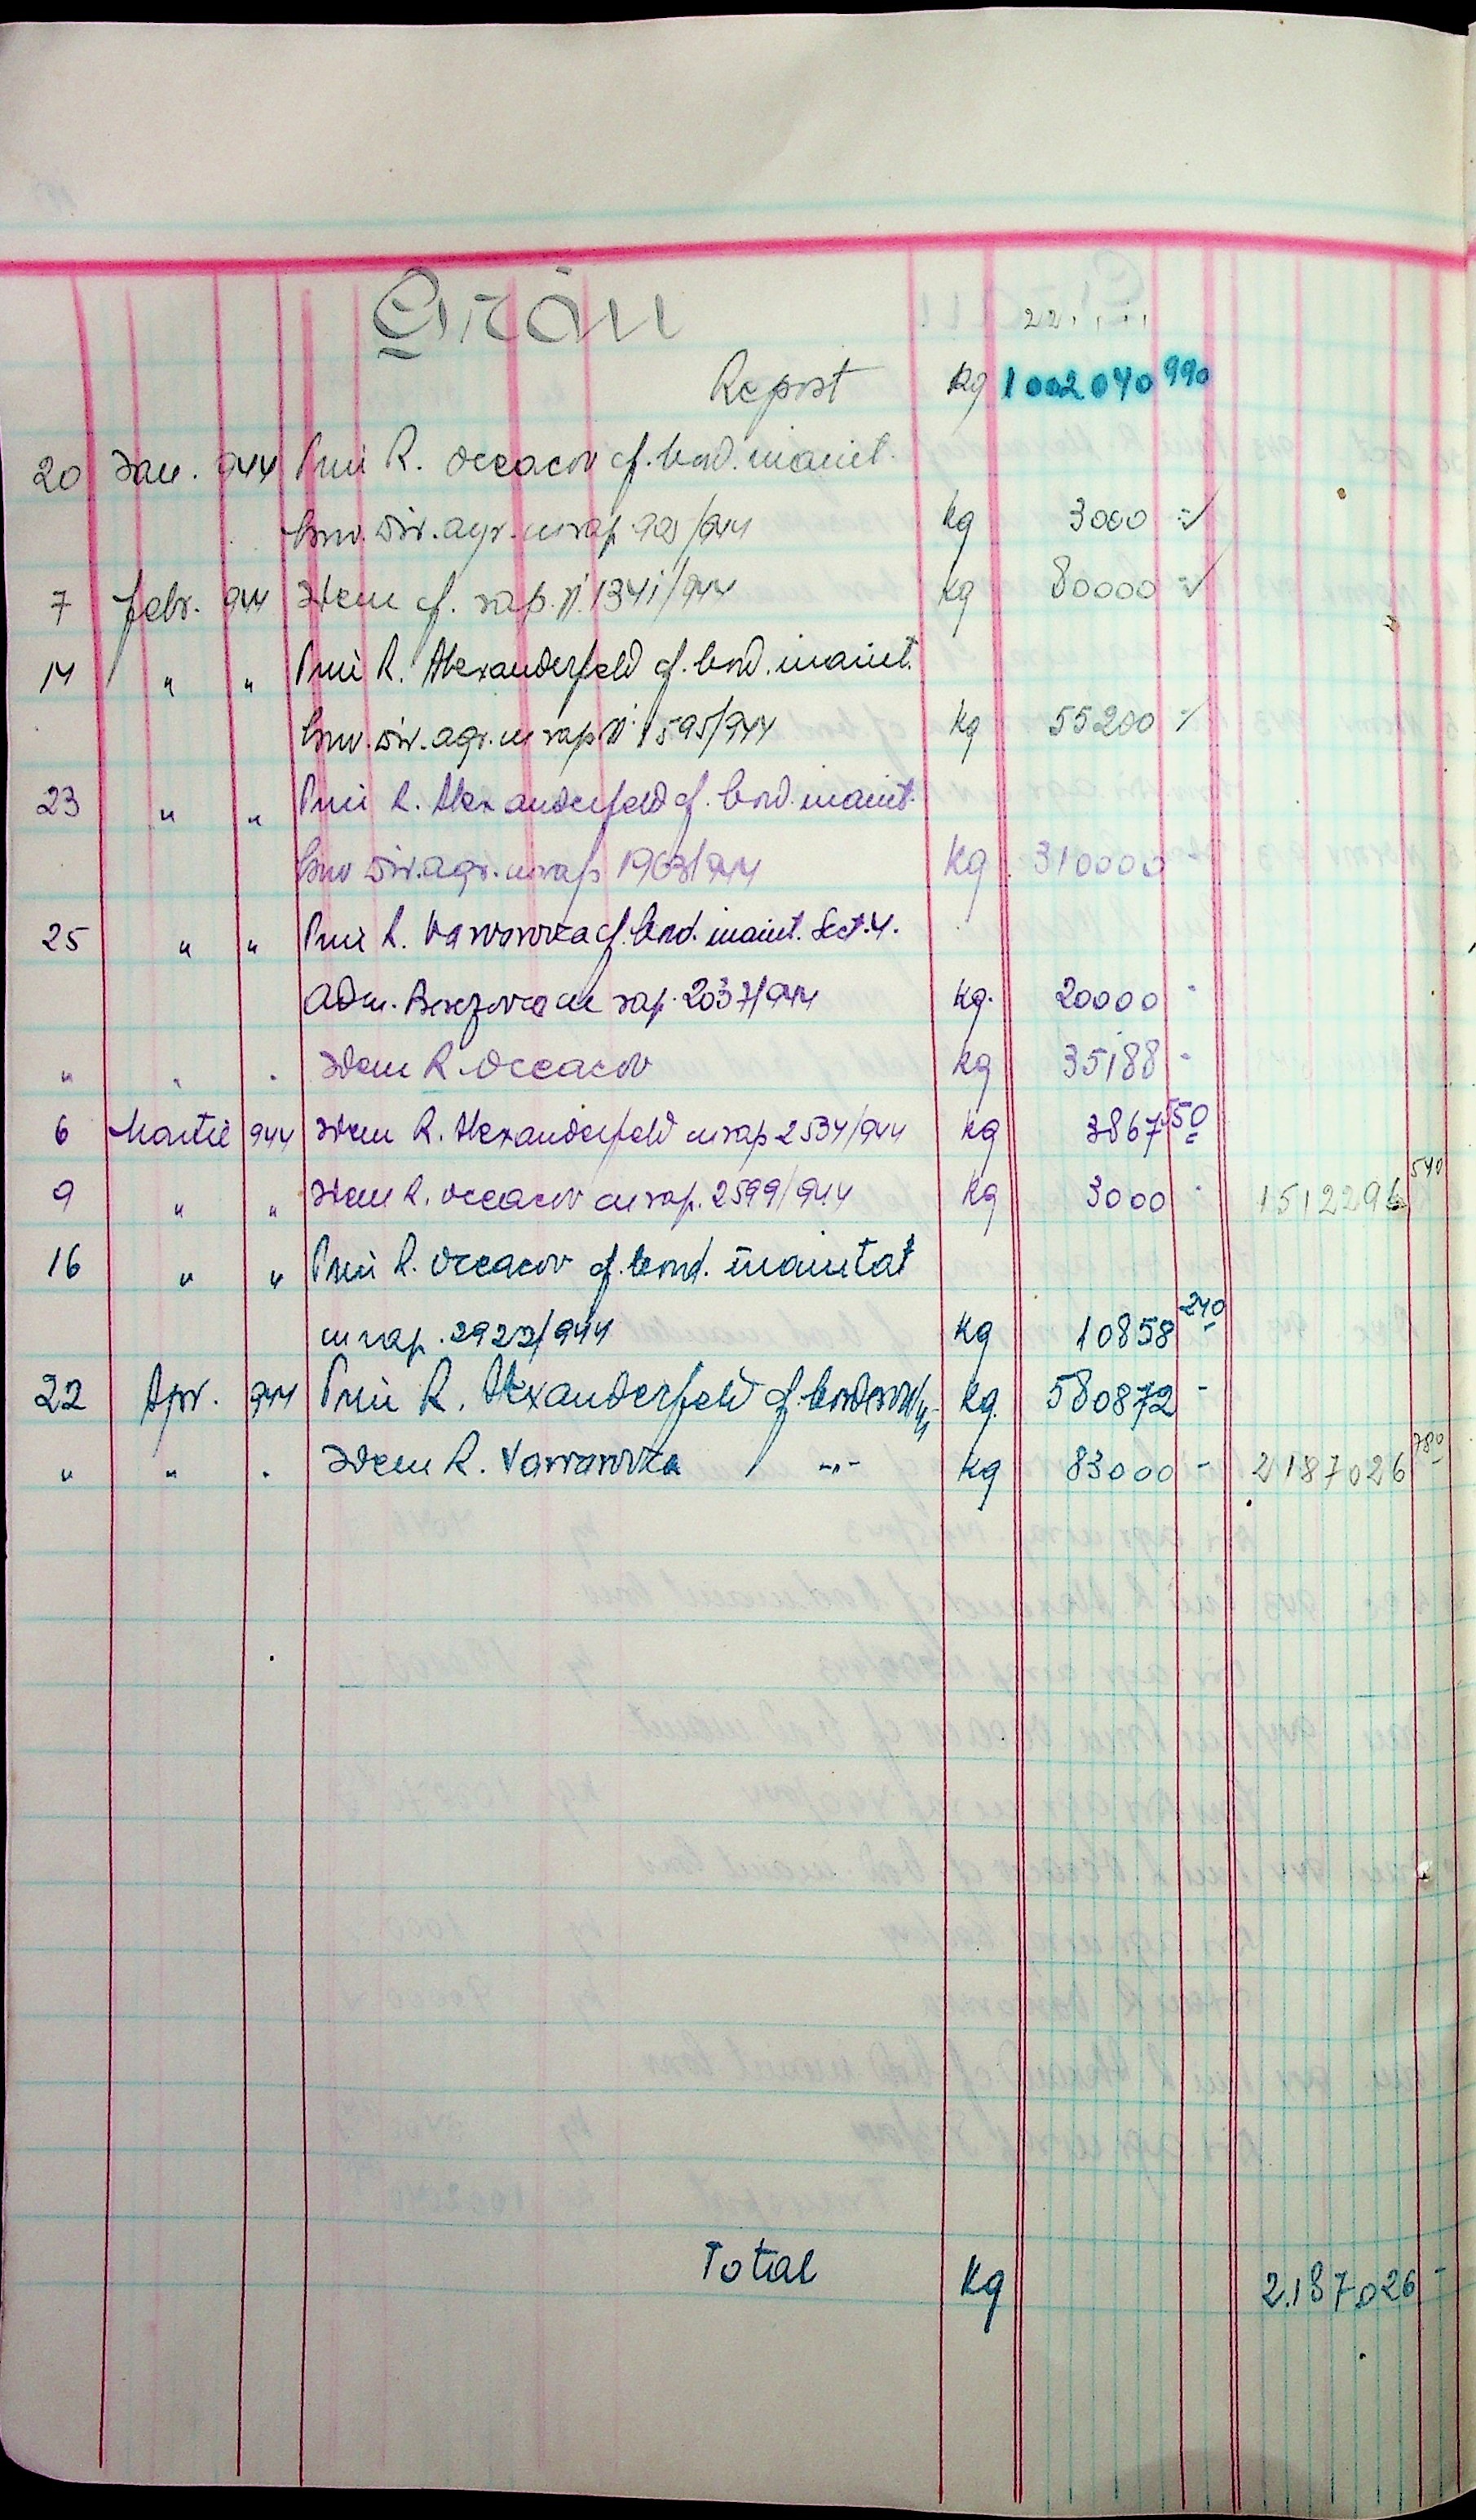 Grâu
Report kg 1002040 990
20 Ian. 944 Prin R. Oceacov cf. bord. inaint.
Conv. Dir. agr. cu rap. 99/944 kg 3000 =
7 febr. 944 Idem cf. rap. № 1341/944 kg 80000 =
14 " " Prin R. Alexanderfeld cf. bord. inaint.
Conv. Dir. agr. cu rap № 1595/944 kg 55200 -
23 " " Prin R. Alexanderfeld cf. bord. inaint.
Conv Dir. agr. cu rap 1963/944 kg 310000 -
25 " " Prin R. Varvarovka cf. bord. inaint. Sect. 4.
Adm. Berezovca cu rap. 2037/944 kg. 20000 -
" " . Idem R. Oceacov kg 35188 -
6 Martie 944 Idem R. Alexanderfeld cu rap 2534/944 kg 3867 550
9 " " Idem R. Oceacov cu rap. 2599/944 kg 3000 - 1512296 540
16 " " Prin R. Oceacov cf. bord. inaintat
cu rap. 2922/944 kg 10858 240
22 Apr. 944 Prin R. Alexanderfeld cf. kg. 580872 -
" " . Idem R. Varvarovka -"- kg 83000 - 2187026 780
Total kg 2.187026 -